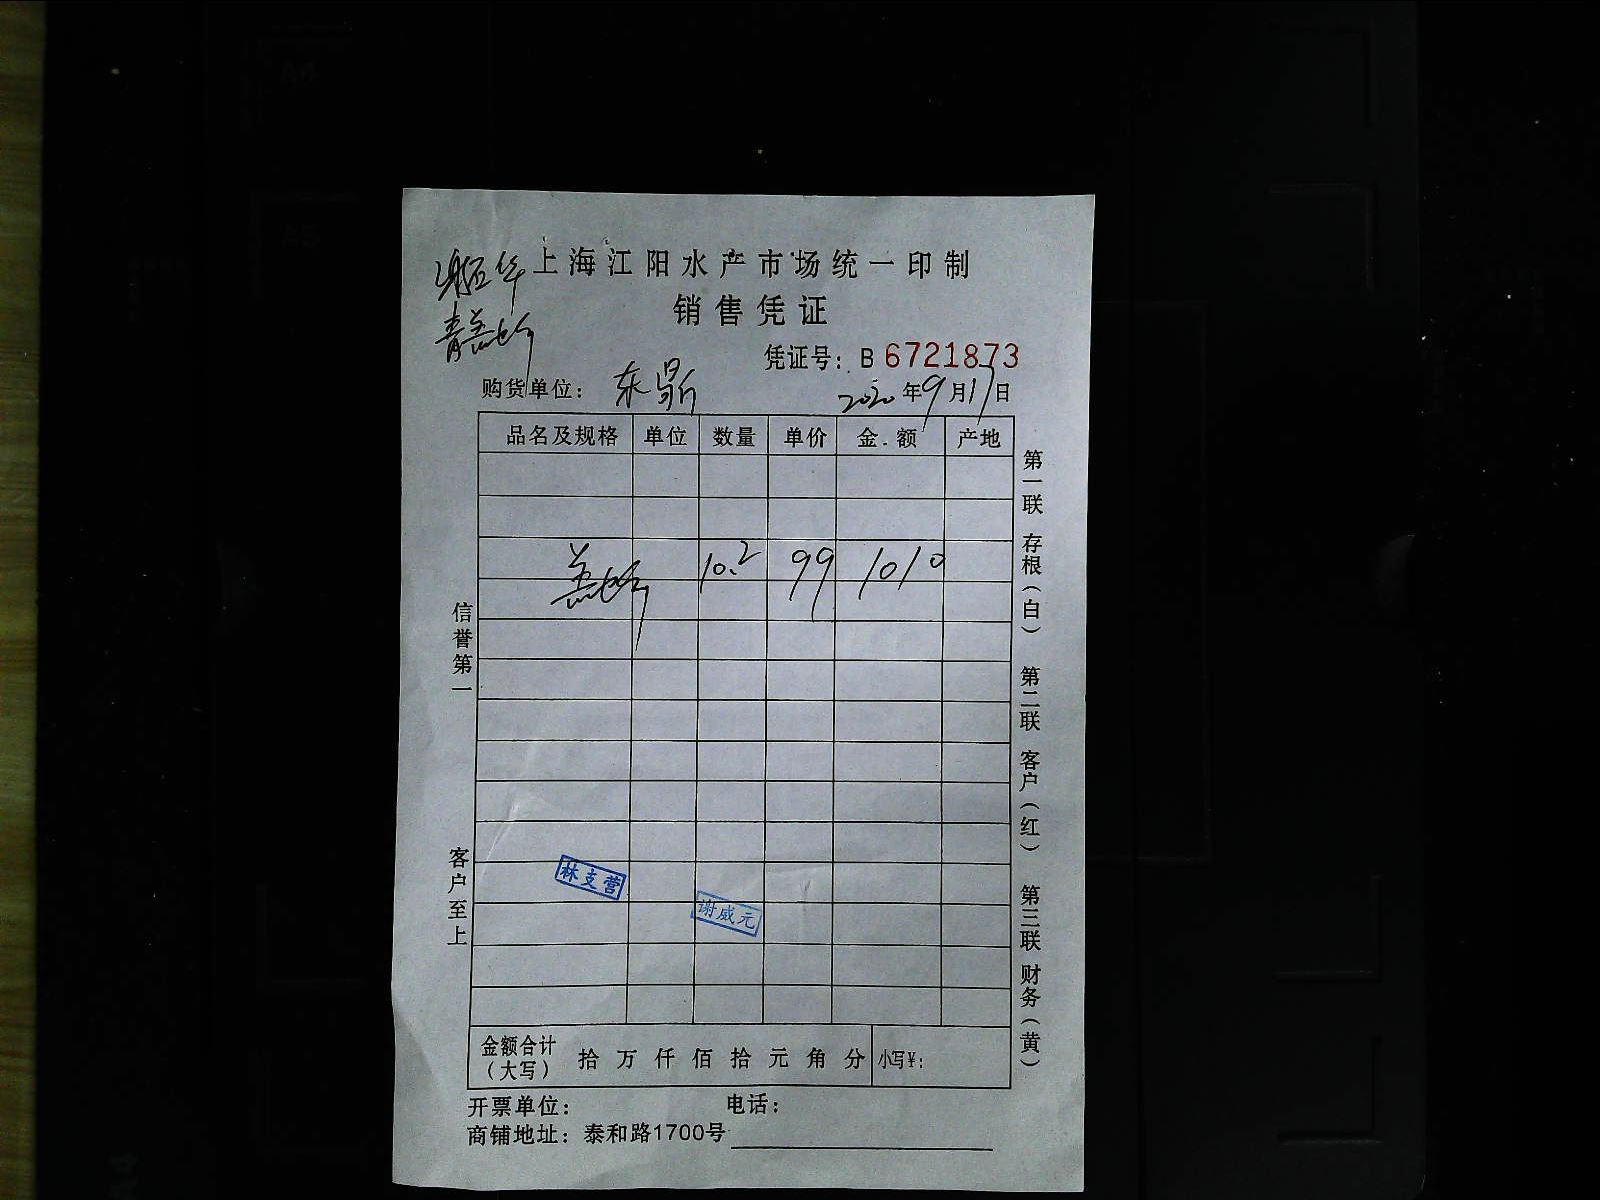 上海江阳水产市场统一印制
销售凭证
凭证号: B 6721873
购货单位: 东鼎 2020年9月17日
品名及规格 单位 数量 单价 金额 产地
10.2 99 1010
信誉第一
客户至上
第一联 存根(白) 第二联 客户(红) 第三联 财务(黄)
林支营
谢威元
金额合计(大写) 拾 万 仟 佰 拾 元 角 分 小写¥:
开票单位: 电话:
商铺地址: 泰和路1700号